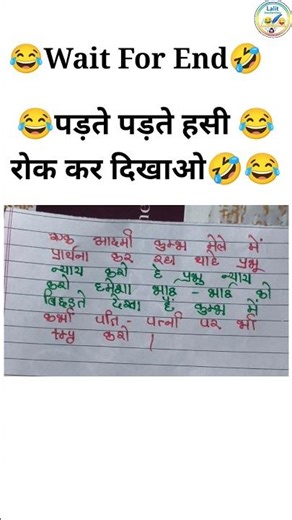 Lalit
😂Wait For End🤣
😂पड़ते पड़ते हसी 😂
रोक कर दिखाओ🤣😂
एक आदमी कुम्भ मेले में
प्रार्थना कर रहा था हे प्रभू
न्याय करो हे प्रभु न्याय
करो हमेशा भाई - भाई को
बिछड़ते देखा है कुम्भ में
कभी पति - पत्नी पर भी
करो |